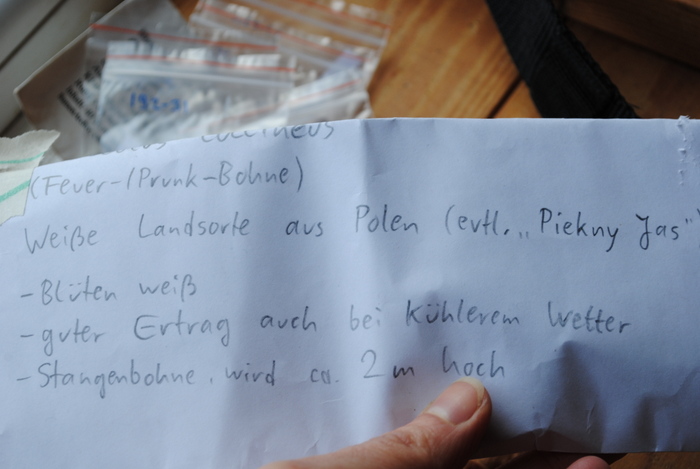 coccineus
(Feuer-/Prunk-Bohne)
Weiße Landsorte aus Polen (evtl. „Piekny Jas")
- Blüten weiß
- guter Ertrag auch bei kühlerem Wetter
- Stangenbohne, wird ca. 2 m hoch